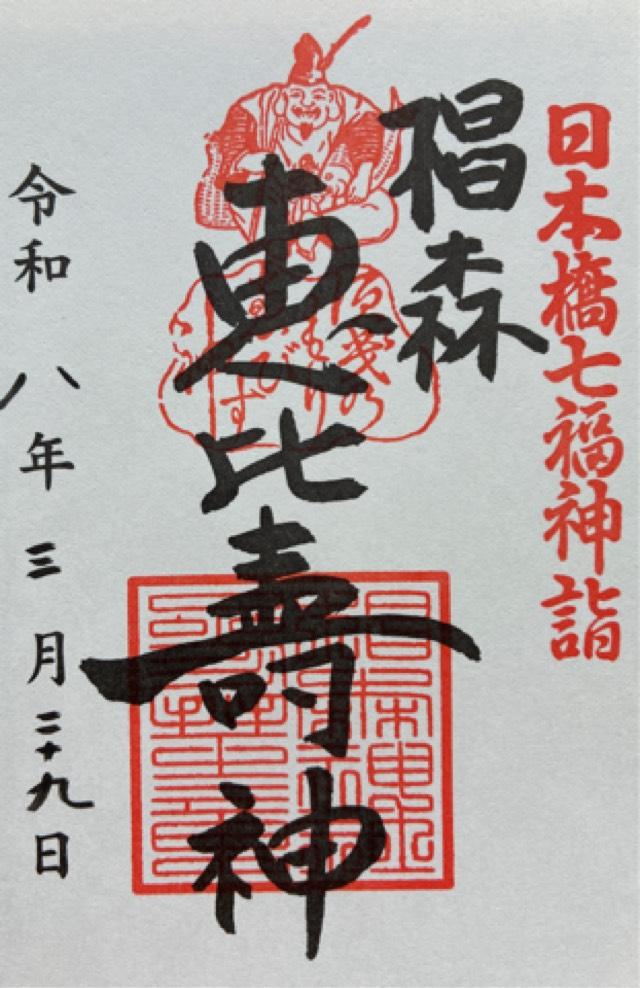 日本橋七福神詣
椙森
恵比壽神
令和八年三月二十九日